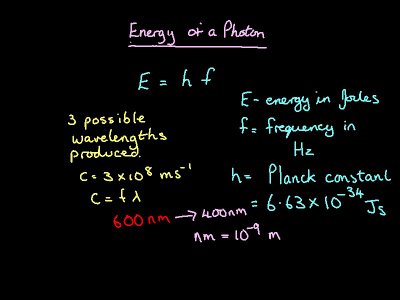 Energy of a Photon
E = h f
E - energy in Joules
f = frequency in
Hz
h = Planck constant
= 6.63 × 10⁻³⁴ Js
3 possible
wavelengths
produced.
C = 3 × 10⁸ ms⁻¹
C = f λ
600 nm → 400nm
nm = 10⁻⁹ m